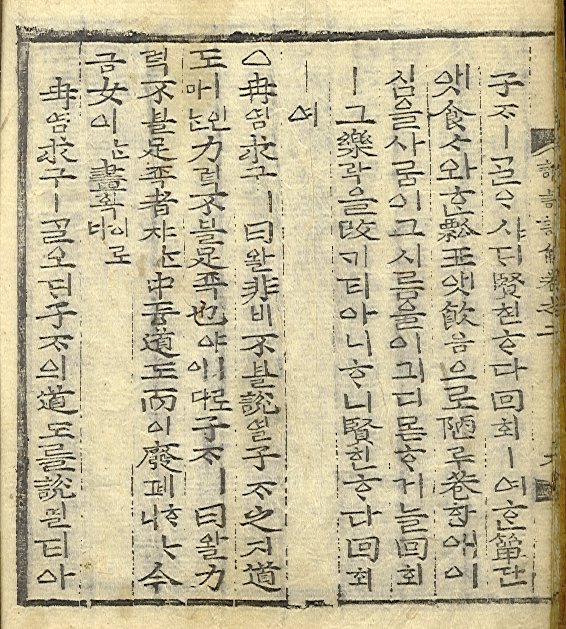 論語諺解卷之二
子ᄌᆞㅣᄀᆞᆯᄋᆞ샤ᄃᆡ賢현ᄒᆞ다回회ㅣ여ᄒᆞᆫ簞단
앳食ᄉᆞ와ᄒᆞᆫ瓢표앳飮음으로陋루巷항애이
심을사ᄅᆞᆷ이그시름을이긔디몯ᄒᆞ거늘回회
ㅣ그樂락을改ᄀᆡ티아니ᄒᆞ니賢현ᄒᆞ다回회
ㅣ여
○冉염求구ㅣ曰왈非비不블說열子ᄌᆞ之지道
도ㅣ언마ᄂᆞᆫ力력不블足죡也야ㅣ로이다子ᄌᆞㅣ曰왈力
력不블足죡者쟈ᄂᆞᆫ中듕道도而이廢폐ᄒᆞᄂᆞ니今
금女여ᄂᆞᆫ畫획이로다
冉염求구ㅣᄀᆞᆯ오ᄃᆡ子ᄌᆞ의道도를說열티아